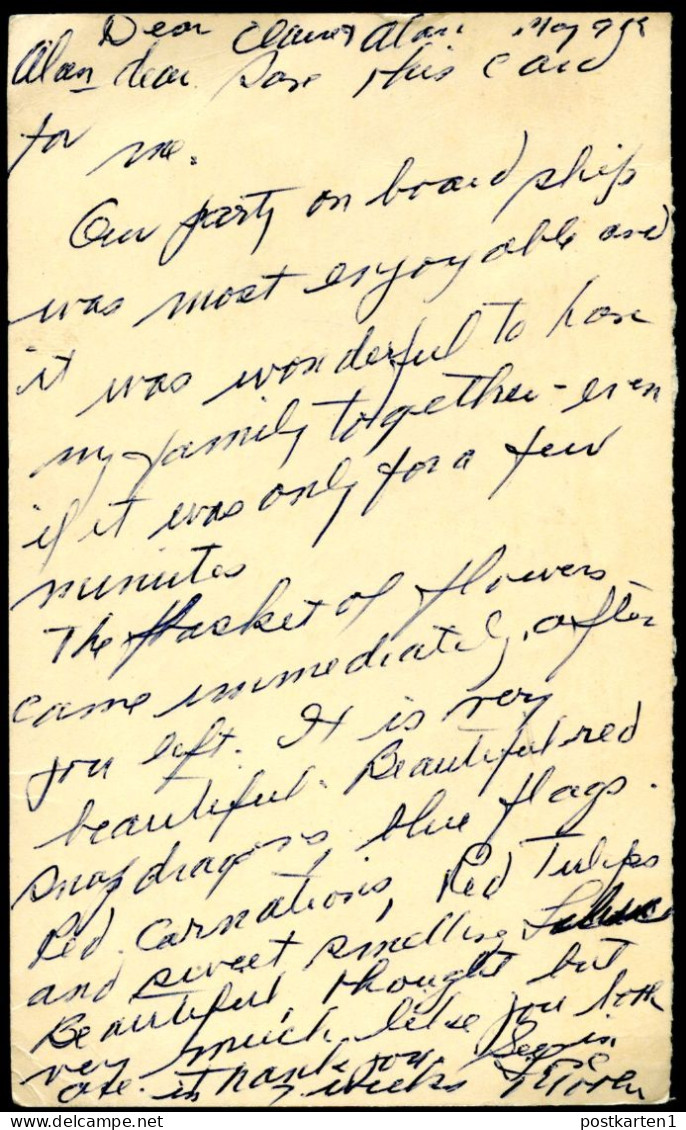 Dear Claire & Alan May 9
Alan dear Save this card
for me.
Our party on board ship
was most enjoyable and
it was wonderful to have
my family together - even
if it was only for a few
minutes
The basket of flowers
came immediately after
you left. It is very
beautiful. Beautiful red
snapdragons, blue flags.
Red Carnations, Red Tulips
and sweet smelling
Beautiful thought but
very much like you both
are. Thank you See
in weeks
postkarten1